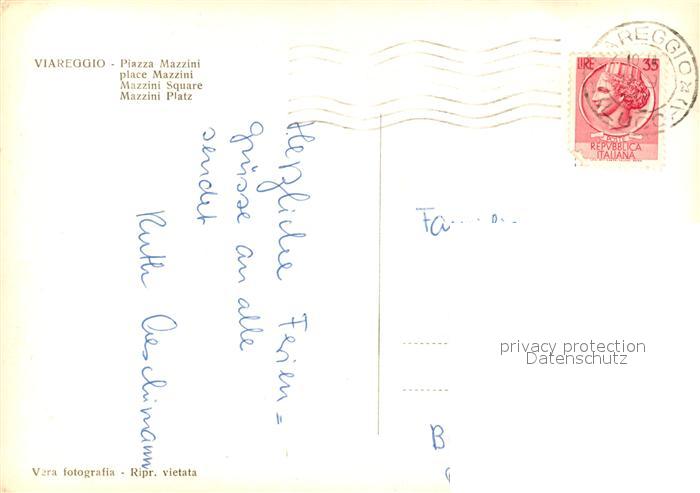 VIAREGGIO - Piazza Mazzini
place Mazzini
Mazzini Square
Mazzini Platz
VIAREGGIO
LUCCA
LIRE 35
POSTE
REPVBBLICA
ITALIANA
Herzliche Ferien=
grüsse an alle
sendet
Ruth Aeschimann
Fa
privacy protection
Datenschutz
B
Vera fotografia - Ripr. vietata